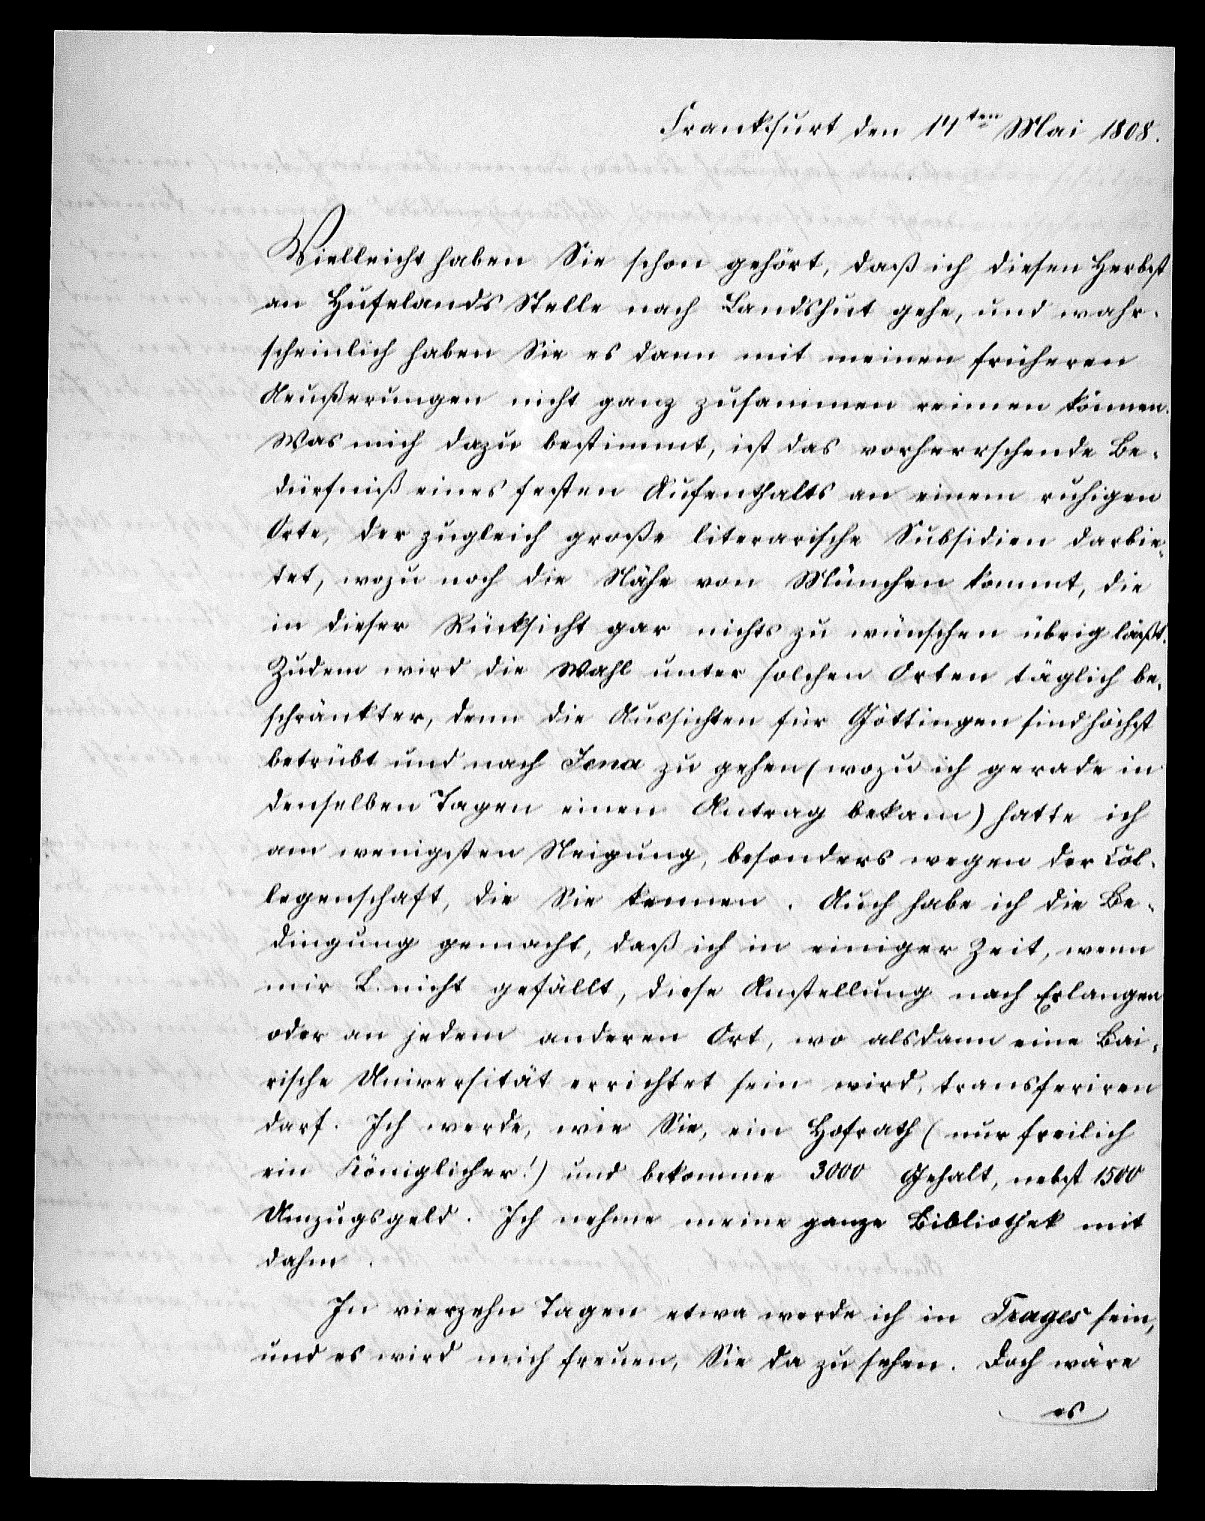 Frankfurt den 14ten Mai 1808.
Vielleicht haben Sie schon gehört, daß ich diesen Herbst
an Hufelands Stelle nach Landshut gehe, und wahr-
scheinlich haben Sie es dann mit meinen früheren
Aeußerungen nicht ganz zusammen reimen können.
Was mich dazu bestimmt, ist das vorherrschende Be-
dürfniß eines festen Aufenthalts an einem ruhigen
Orte, der zugleich große literarische Subsidien darbie-
tet, wozu noch die Nähe von München kommt, die
in dieser Rücksicht gar nichts zu wünschen übrig läßt.
Zudem wird die Wahl unter solchen Orten täglich be-
schränkter, denn die Aussichten für Göttingen sind höchst
betrübt und nach Jena zu gehen (wozu ich gerade in
denselben Tagen einen Antrag bekam) hatte ich
am wenigsten Neigung, besonders wegen der Col-
legenschaft, die Sie kennen. Auch habe ich die Be-
dingung gemacht, daß ich in einiger Zeit, wenn
mir L. nicht gefällt, diese Anstellung nach Erlangen
oder an jedem anderen Ort, wo alsdann eine Bai-
rische Universität errichtet sein wird, transferiren
darf. Ich werde, wie Sie, ein Hofrath (nur freilich
ein Königlicher!) und bekomme 3000 Gehalt, nebst 1500
Umzugsgeld. Ich nehme meine ganze Bibliothek mit
dahin.
In vierzehn Tagen etwa werde ich in Trages sein,
und es wird mich freuen, Sie da zu sehen. Doch wäre
es